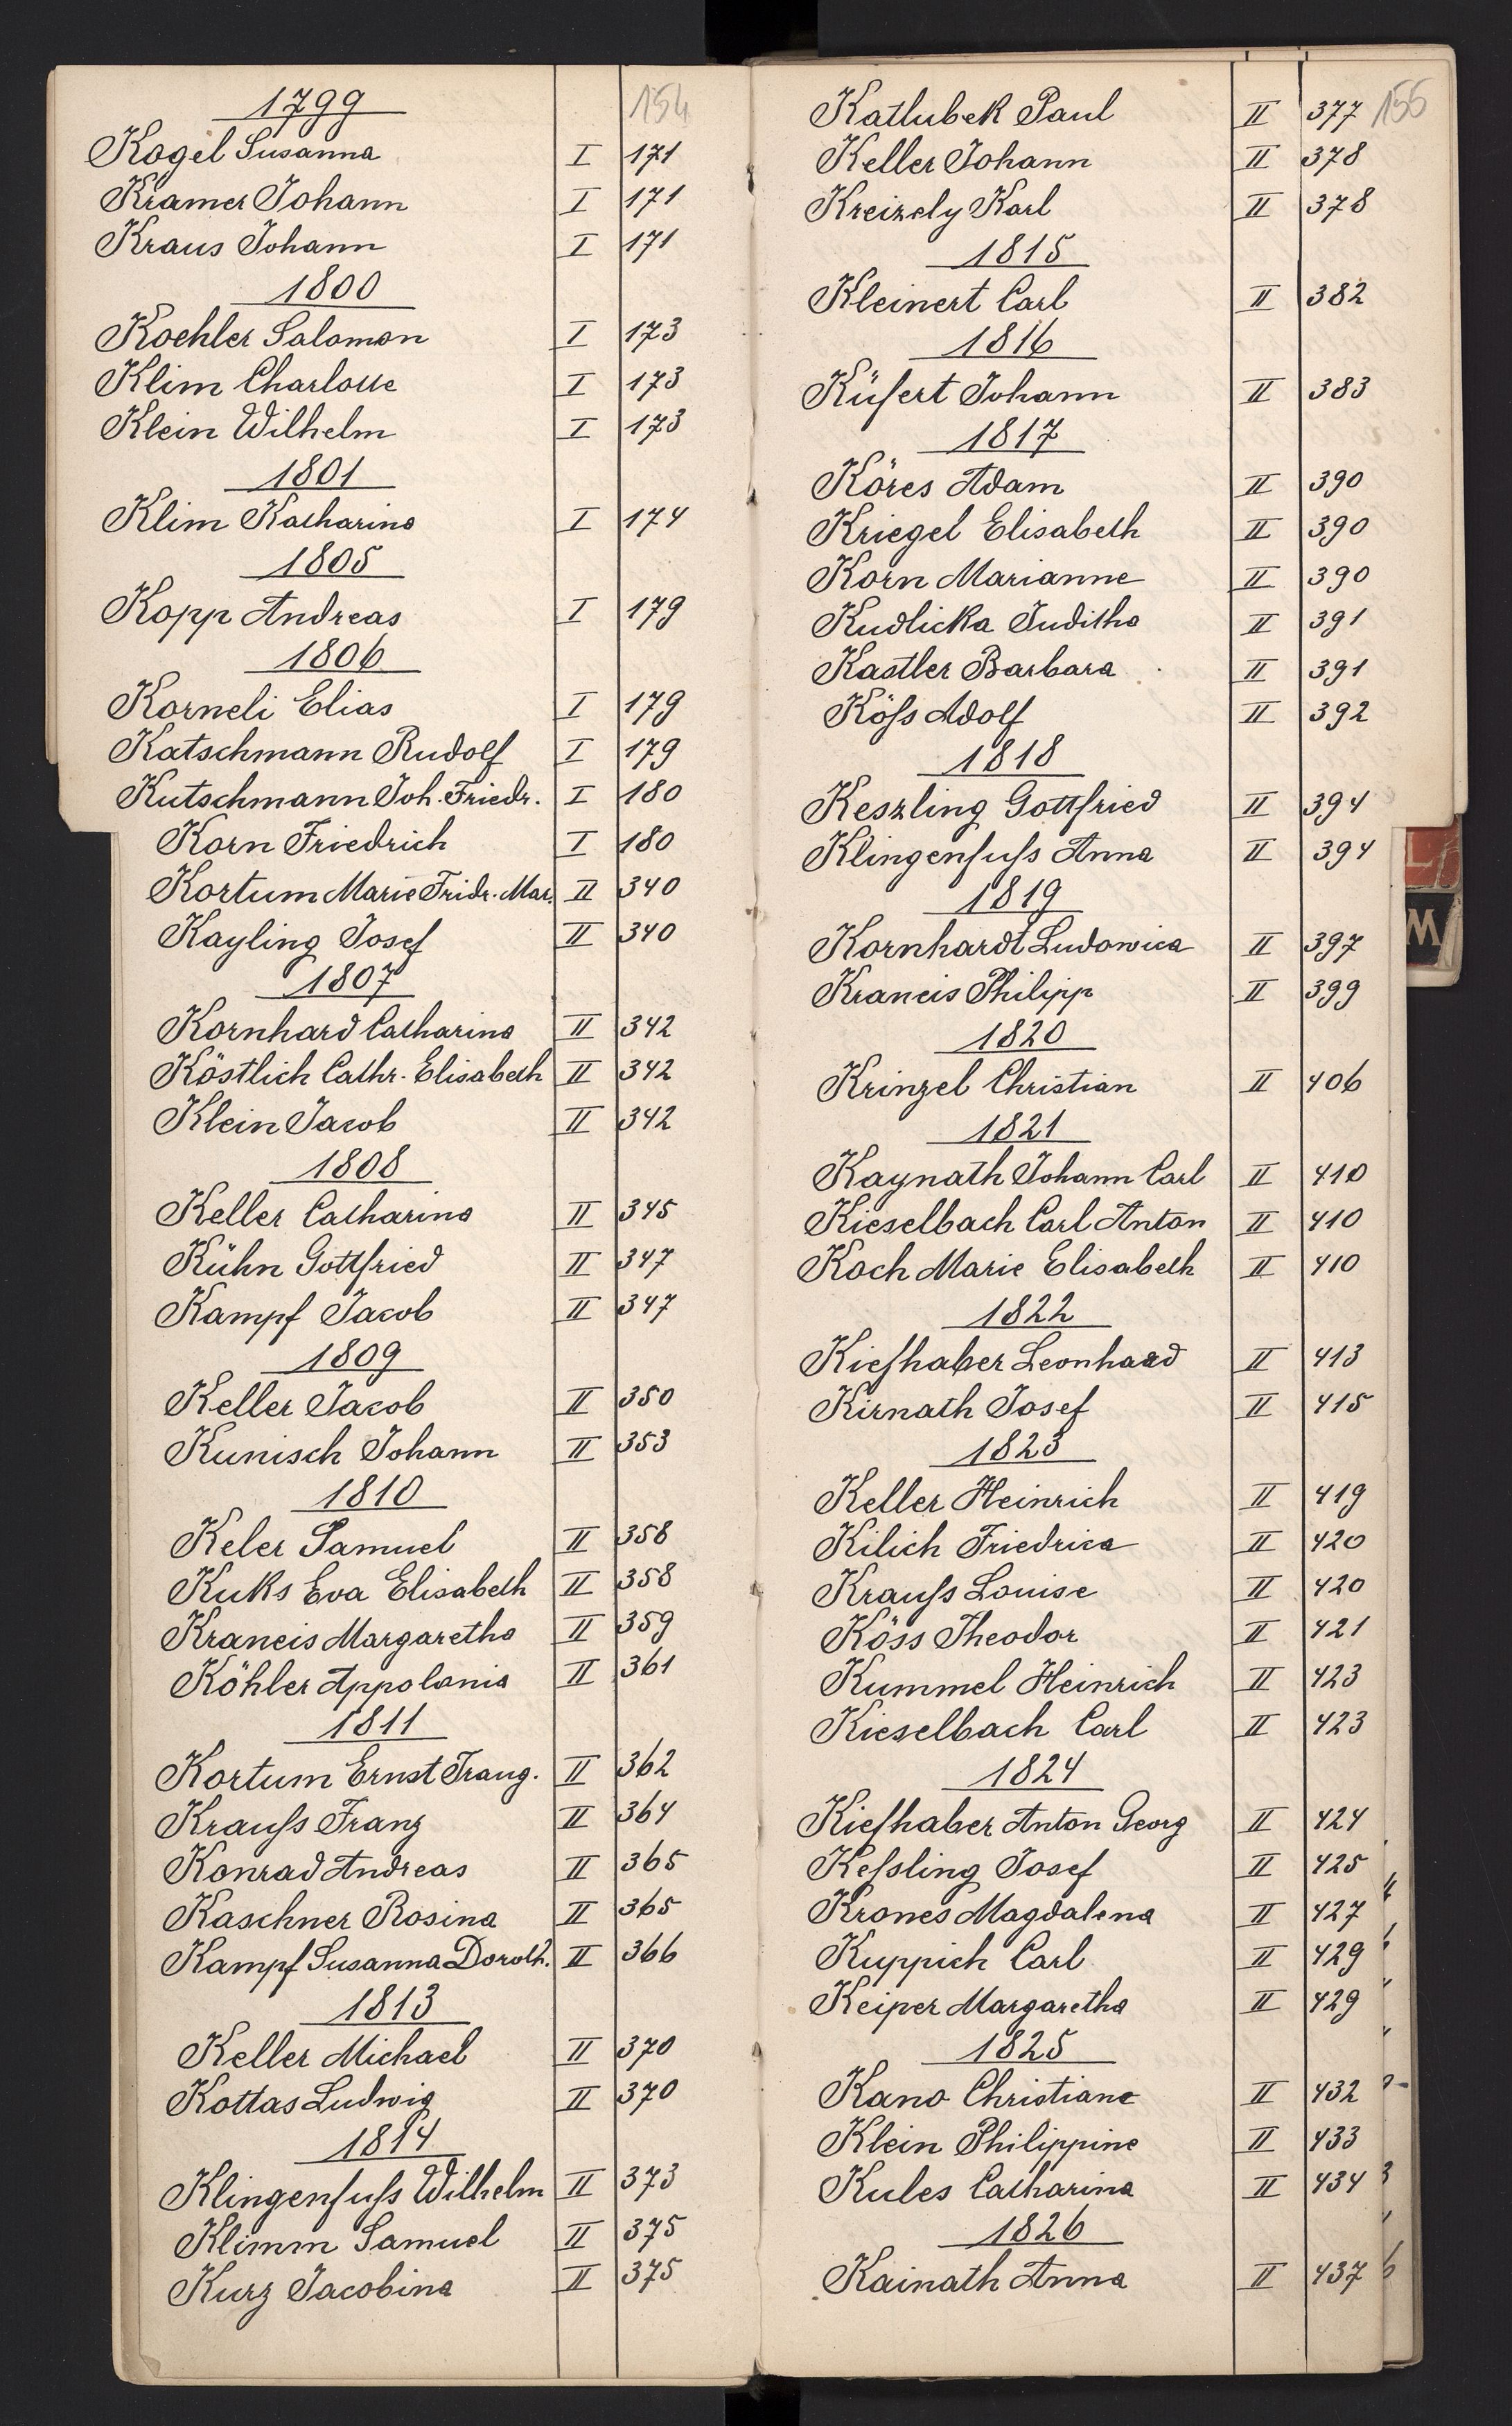 154
1799
Kogel Susanna I 171
Kramer Johann I 171
Kraus Johann I 171
1800
Koehler Salomon I 173
Klim Charlotte I 173
Klein Wilhelm I 173
1801
Klim Katharina I 174
1805
Kopp Andreas I 179
1806
Korneli Elias I 179
Katschmann Rudolf I 179
Kutschmann Joh. Friedr. I 180
Korn Friedrich I 180
Kortum Marie Fridr. Mar. II 340
Kayling Josef II 340
1807
Kornhard Catharina II 342
Köstlich Cathr. Elisabeth II 342
Klein Jacob II 342
1808
Keller Catharina II 345
Kühn Gottfried II 347
Kampf Jacob II 347
1809
Keller Jacob II 350
Kunisch Johann II 353
1810
Keler Samuel II 358
Kuks Eva Elisabeth II 358
Krancis Margaretha II 359
Köhler Appolonia II 361
1811
Kortum Ernst Traug. II 362
Krauſs Franz II 364
Konrad Andreas II 365
Kaschner Rosina II 365
Kampf Susanna Doroth. II 366
1813
Keller Michael II 370
Kottas Ludwig II 370
1814
Klingenfuſs Wilhelm II 373
Klimm Samuel II 375
Kurz Jacobina II 375
155
Katlubek Paul II 377
Keller Johann II 378
Kreizely Karl II 378
1815
Kleinert Carl II 382
1816
Küfert Johann II 383
1817
Köres Adam II 390
Kriegel Elisabeth II 390
Korn Marianne II 390
Kudlicka Juditha II 391
Kastler Barbara II 391
Köſs Adolf II 392
1818
Keszling Gottfried II 394
Klingenfuſs Anna II 394
1819
Kornhardt Ludowica II 397
Krancis Philipp II 399
1820
Krinzel Christian II 406
1821
Kaynath Johann Carl II 410
Kieselbach Carl Anton II 410
Koch Marie Elisabeth II 410
1822
Kiefhaber Leonhard II 413
Kirnath Josef II 415
1823
Keller Heinrich II 419
Kilich Friedrica II 420
Krauſs Louise II 420
Köss Theodor II 421
Kummel Heinrich II 423
Kieselbach Carl II 423
1824
Kiefhaber Anton Georg II 424
Keſsling Josef II 425
Krones Magdalena II 427
Kuppich Carl II 429
Keiper Margaretha II 429
1825
Kano Christiane II 432
Klein Philippine II 433
Kules Catharina II 434
1826
Kainath Anna II 437
L
M